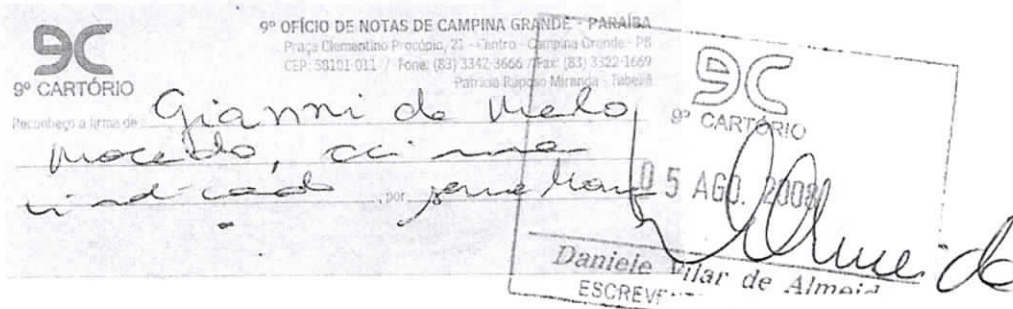 9º OFÍCIO DE NOTAS DE CAMPINA GRANDE - PARAÍBA
Praça Clementino Procópio, 21 - Centro - Campina Grande - PB
CEP: 58101-011 / Fone: (83) 3342-3666 / Fax: (83) 3322-1669
Patrícia Raposo Miranda - Tabeliã
9C
9º CARTÓRIO
Reconheço a firma de Gianni de Melo
Macedo, acima
indicada, por
9C
9º CARTÓRIO
05 AGO. 2008
Daniele Vilar de Almeid
ESCREVE